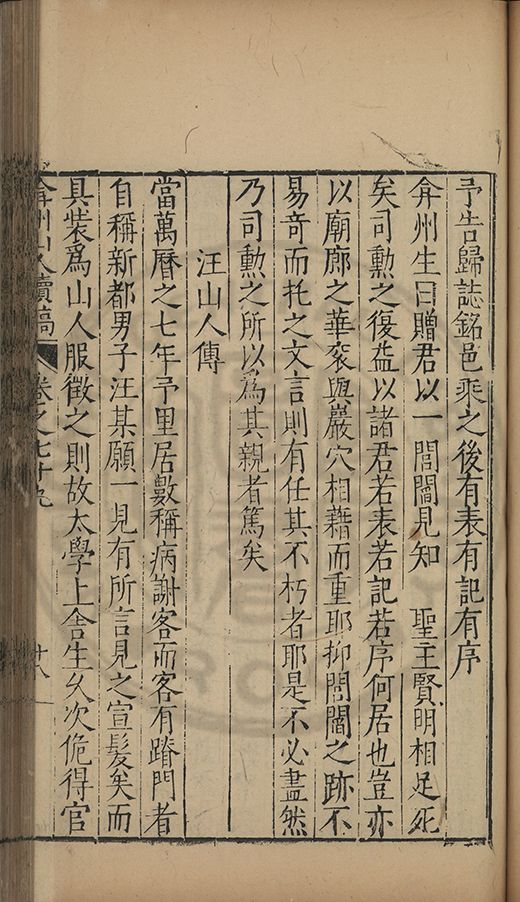 予告歸誌銘邑乘之後有表有記有序
弇州生曰贈君以一閭閻見知　聖主賢明相足死
矣司勳之復益以諸君若表若記若序何居也豈亦
以廟廊之華袞與巖穴相藉而重耶抑閭閻之跡不
易奇而托之文言則有任其不朽者耶是不必盡然
乃司勳之所以爲其親者篤矣
汪山人傳
當萬曆之七年予里居數稱病謝客而客有踏門者
自稱新都男子汪某願一見有所言見之宣髮矣而
具裝爲山人服徵之則故太學上舍生乆次俛得官
弇州山人續稿　卷之七十九　廿八